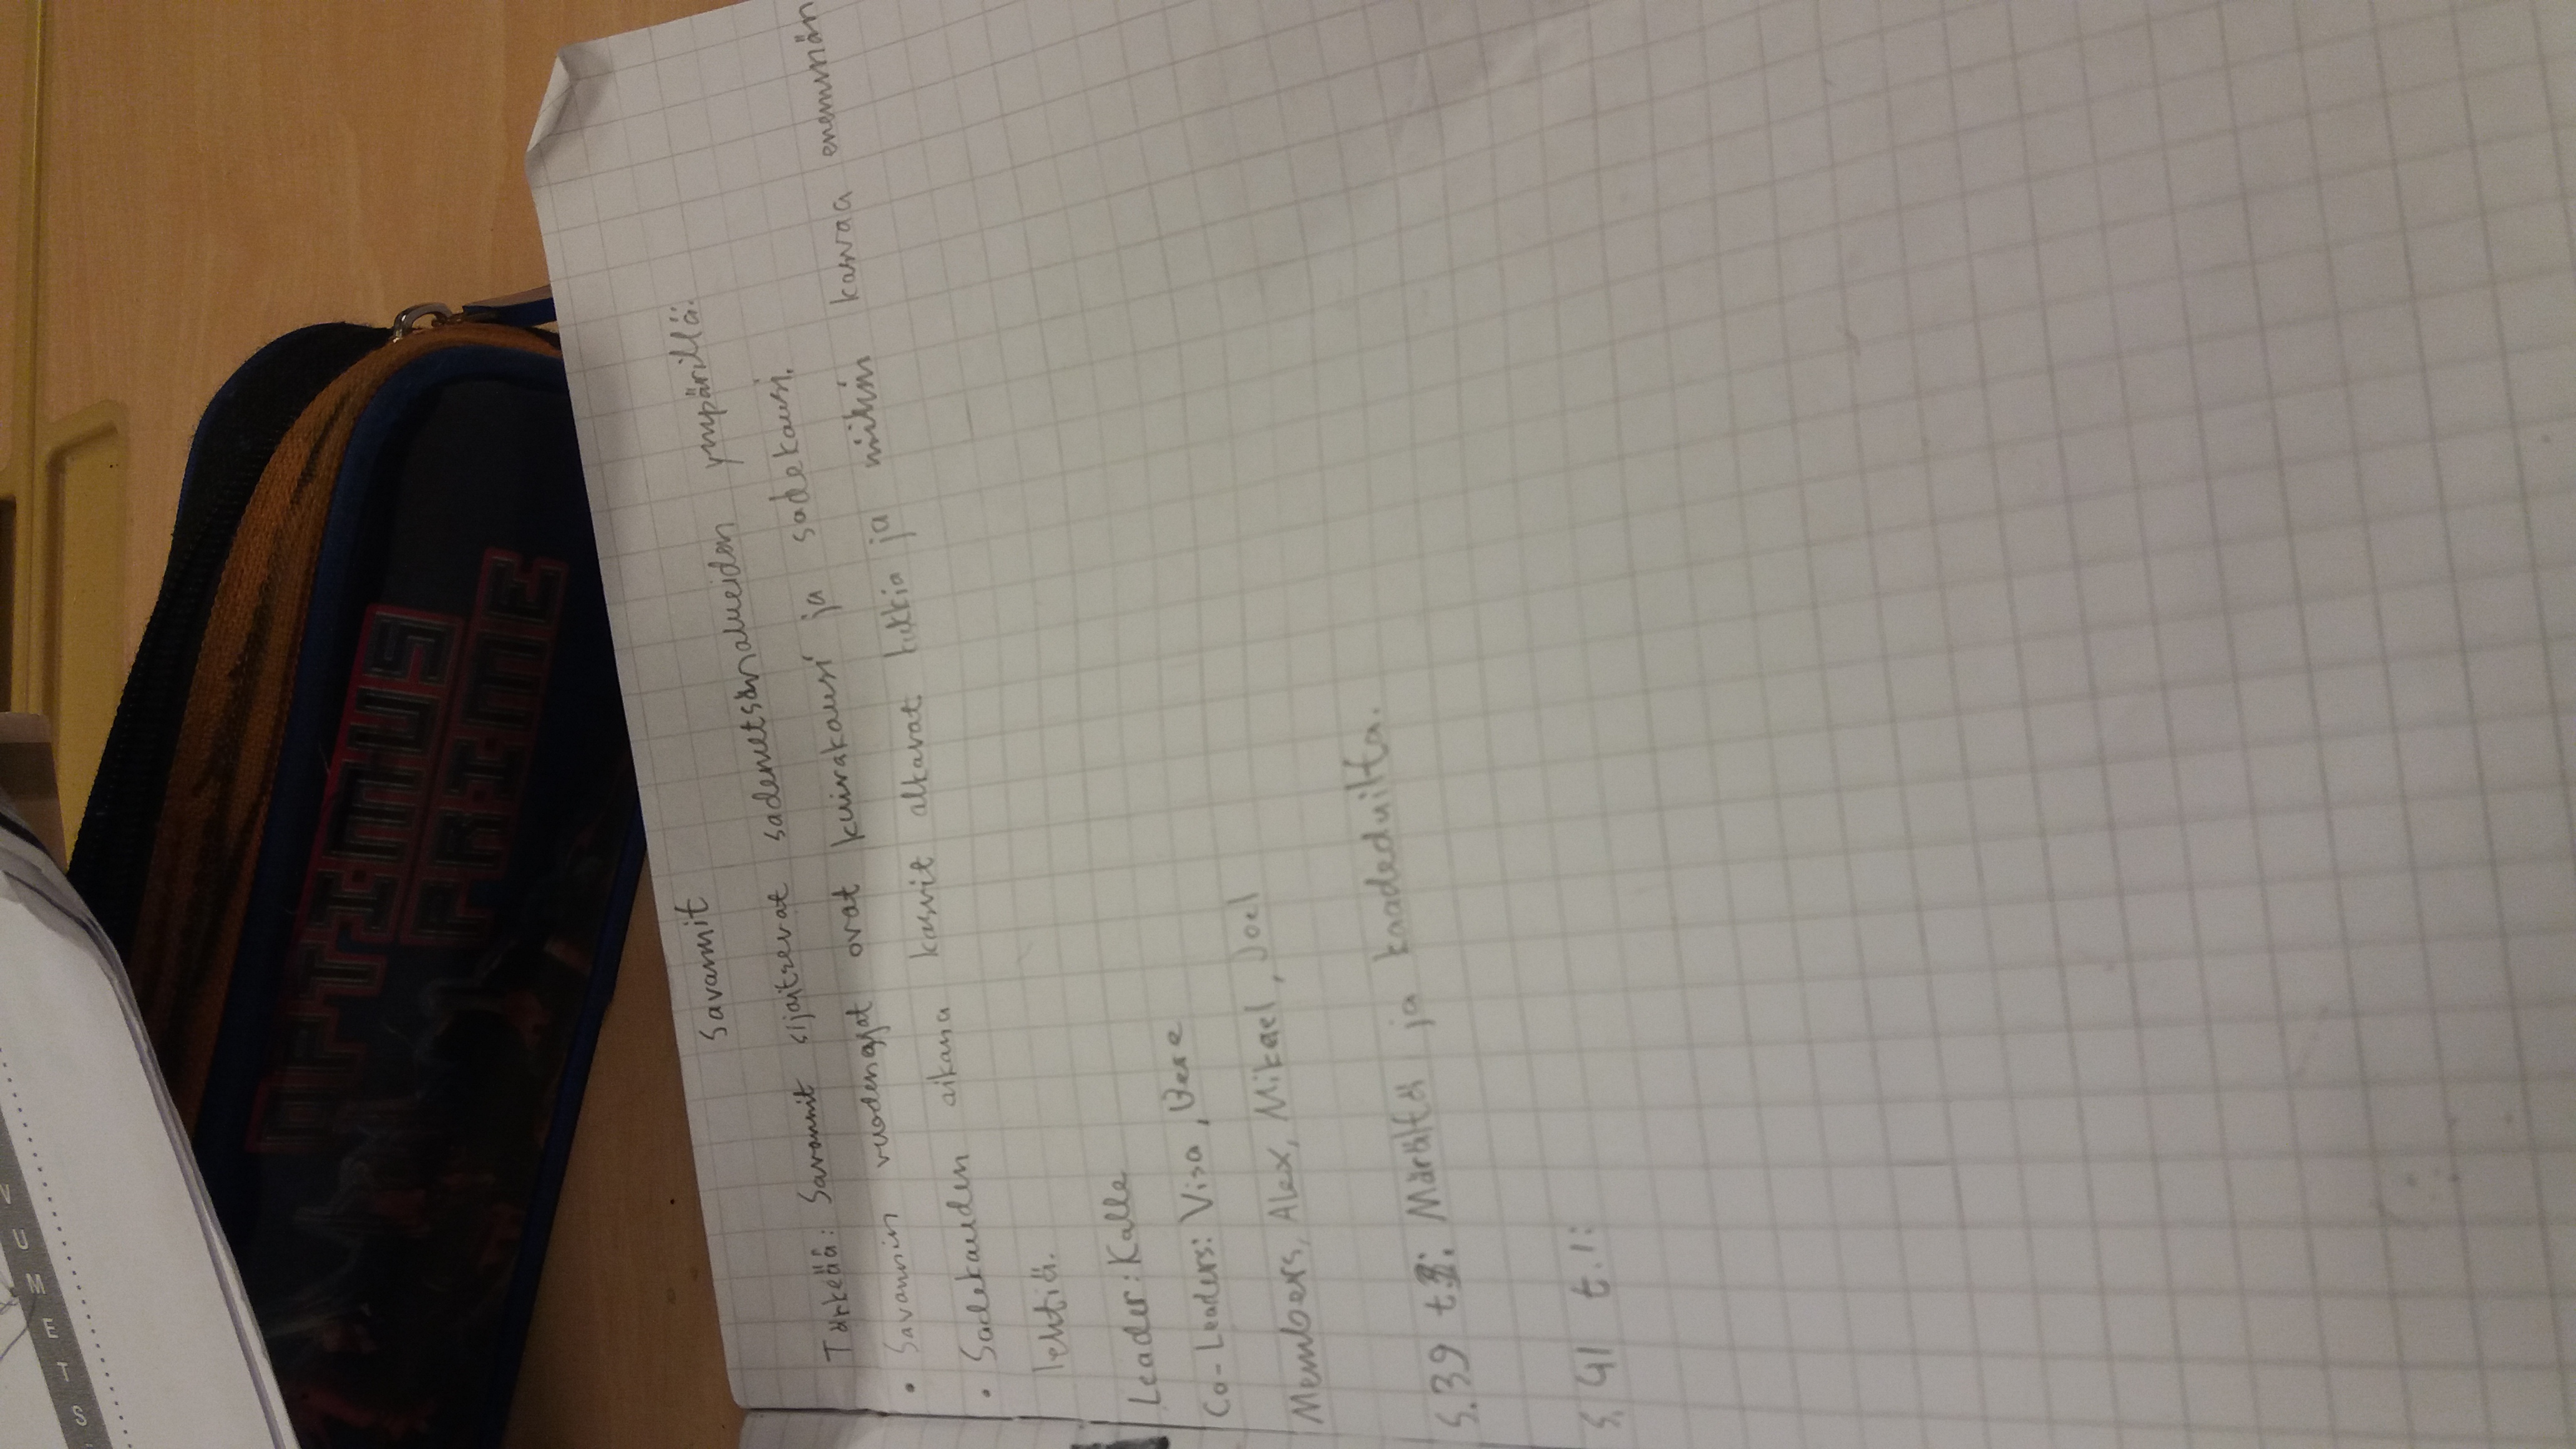 Savannit
Tärkeää: Savannit sijaitsevat sademetsänalueiden ympärillä.
• Savannin vuodenajat ovat kuivakausi ja sadekausi.
• Sadekauden aikana kasvit alkavat kukkia ja niihin kasvaa enemmän
lehtiä.
Leader: Kalle
Co-Leaders: Visa,
Members, Alex, Mikael, Joel
S.39 Märältä ja kaadeduilta.
S. 41 t.1:
OPTIMUS
PRIME